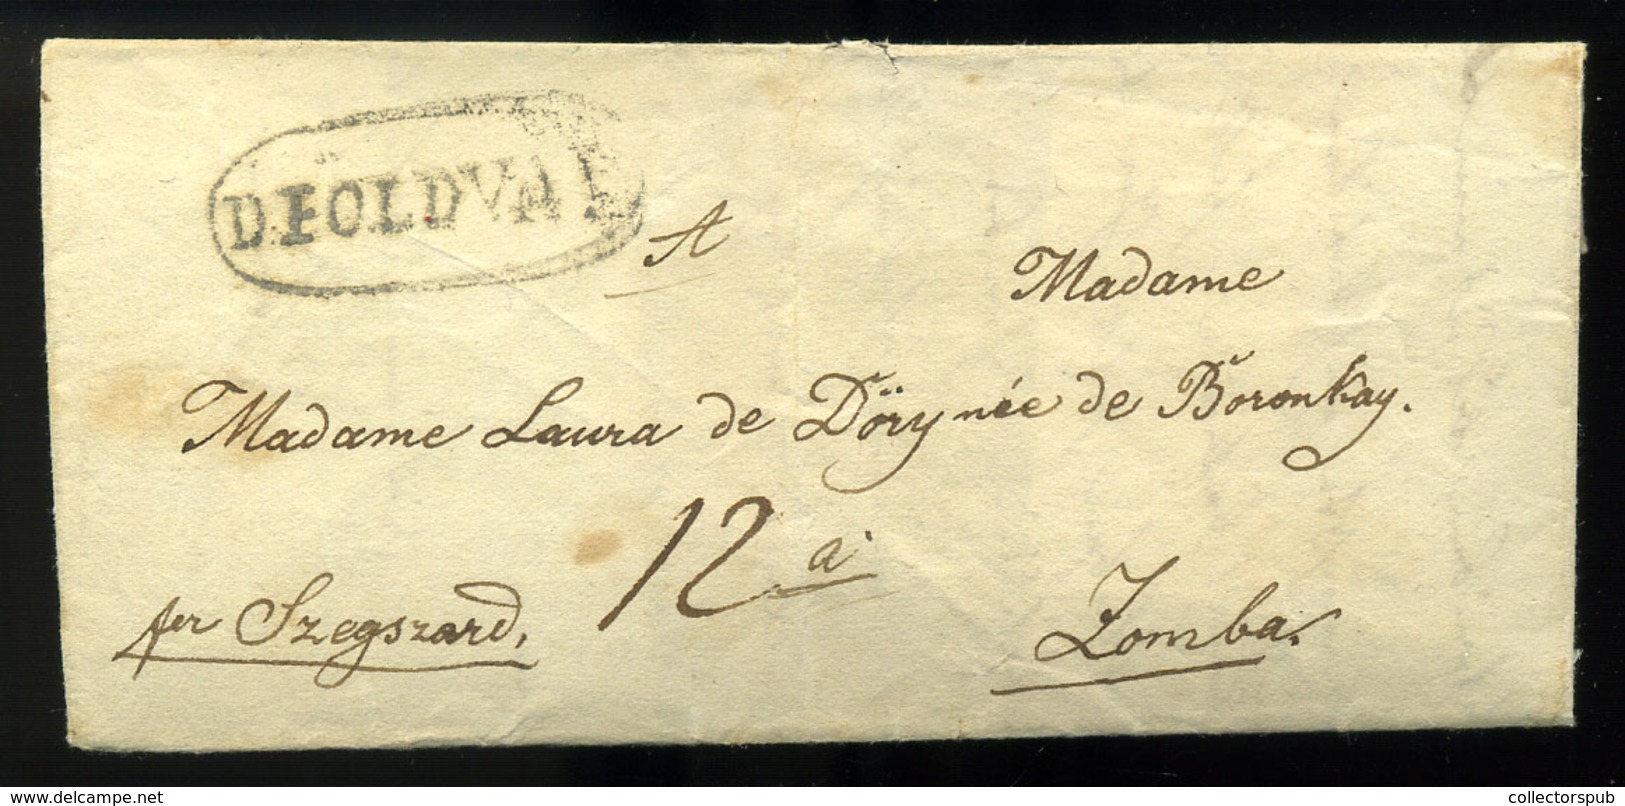 D.FÖLDVAR
A
Madame
Madame Laura de Döry née de Boronkay.
12 a
per Szegszard.
Zomba.
collectorspub